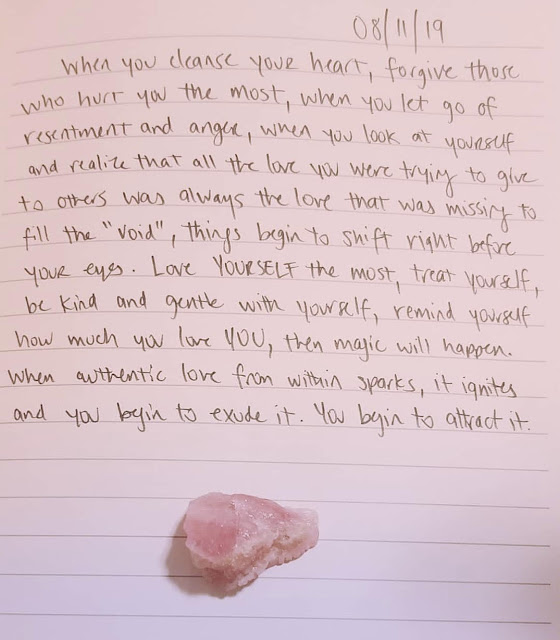 08/11/19
When you cleanse your heart, forgive those
who hurt you the most, when you let go of
resentment and anger, when you look at yourself
and realize that all the love you were trying to give
to others was always the love that was missing to
fill the "void", things begin to shift right before
your eyes. Love YOURSELF the most, treat yourself,
be kind and gentle with yourself, remind yourself
how much you love YOU, then magic will happen.
When authentic love from within sparks, it ignites
and you begin to exude it. You begin to attract it.